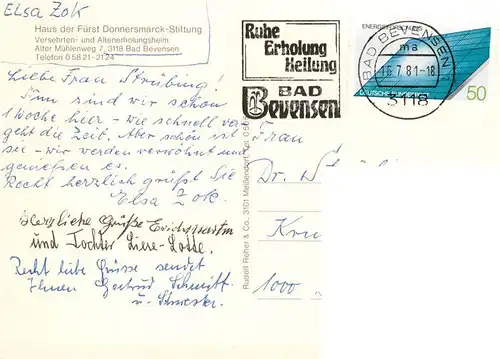 Elsa Zok
Haus der Fürst Donnersmarck-Stiftung
Versehrten- und Altenerholungsheim
Alter Mühlenweg 7, 3118 Bad Bevensen
Telefon 0 58 21 - 21 24
Liebe Frau Strübing!
Nun sind wir schon
1 Woche hier - wie schnell ver-
geht die Zeit. Aber schön ist
sie - wir werden verwöhnt und
genießen es.
Recht herzlich grüßt Sie
Elsa Zok.
Herzliche Grüße
und Tochter Liese-Lotte.
Recht liebe Grüsse sendet
Ihnen Gertrud Schmitt
u. Schwester.
Rudolf Reher & Co., 3101 Meißendorf, Tel. 0 50
Ruhe
Erholung
Heilung
BAD
Bevensen
BAD BEVENSEN
ma
16.7.81-18
3118
DEUTSCHE BUNDESPOST
50
Frau
Dr.
1000